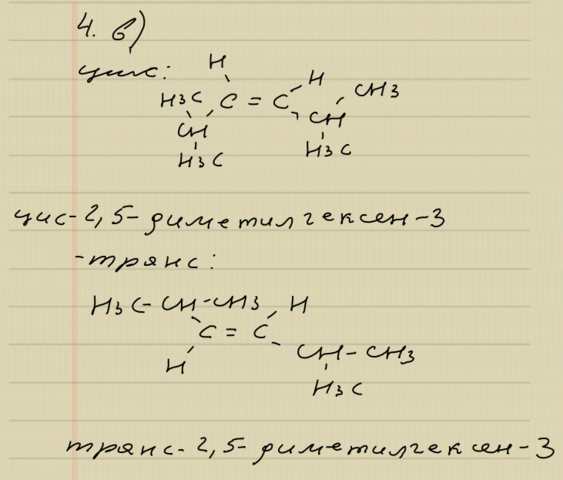 4. в)
цис:
H H
H3C C = C CH3
CH CH
H3C H3C
цис-2,5-диметилгексен-3
-транс:
H3C-CH-CH3 H
C = C
H CH-CH3
H3C
транс-2,5-диметилгексен-3